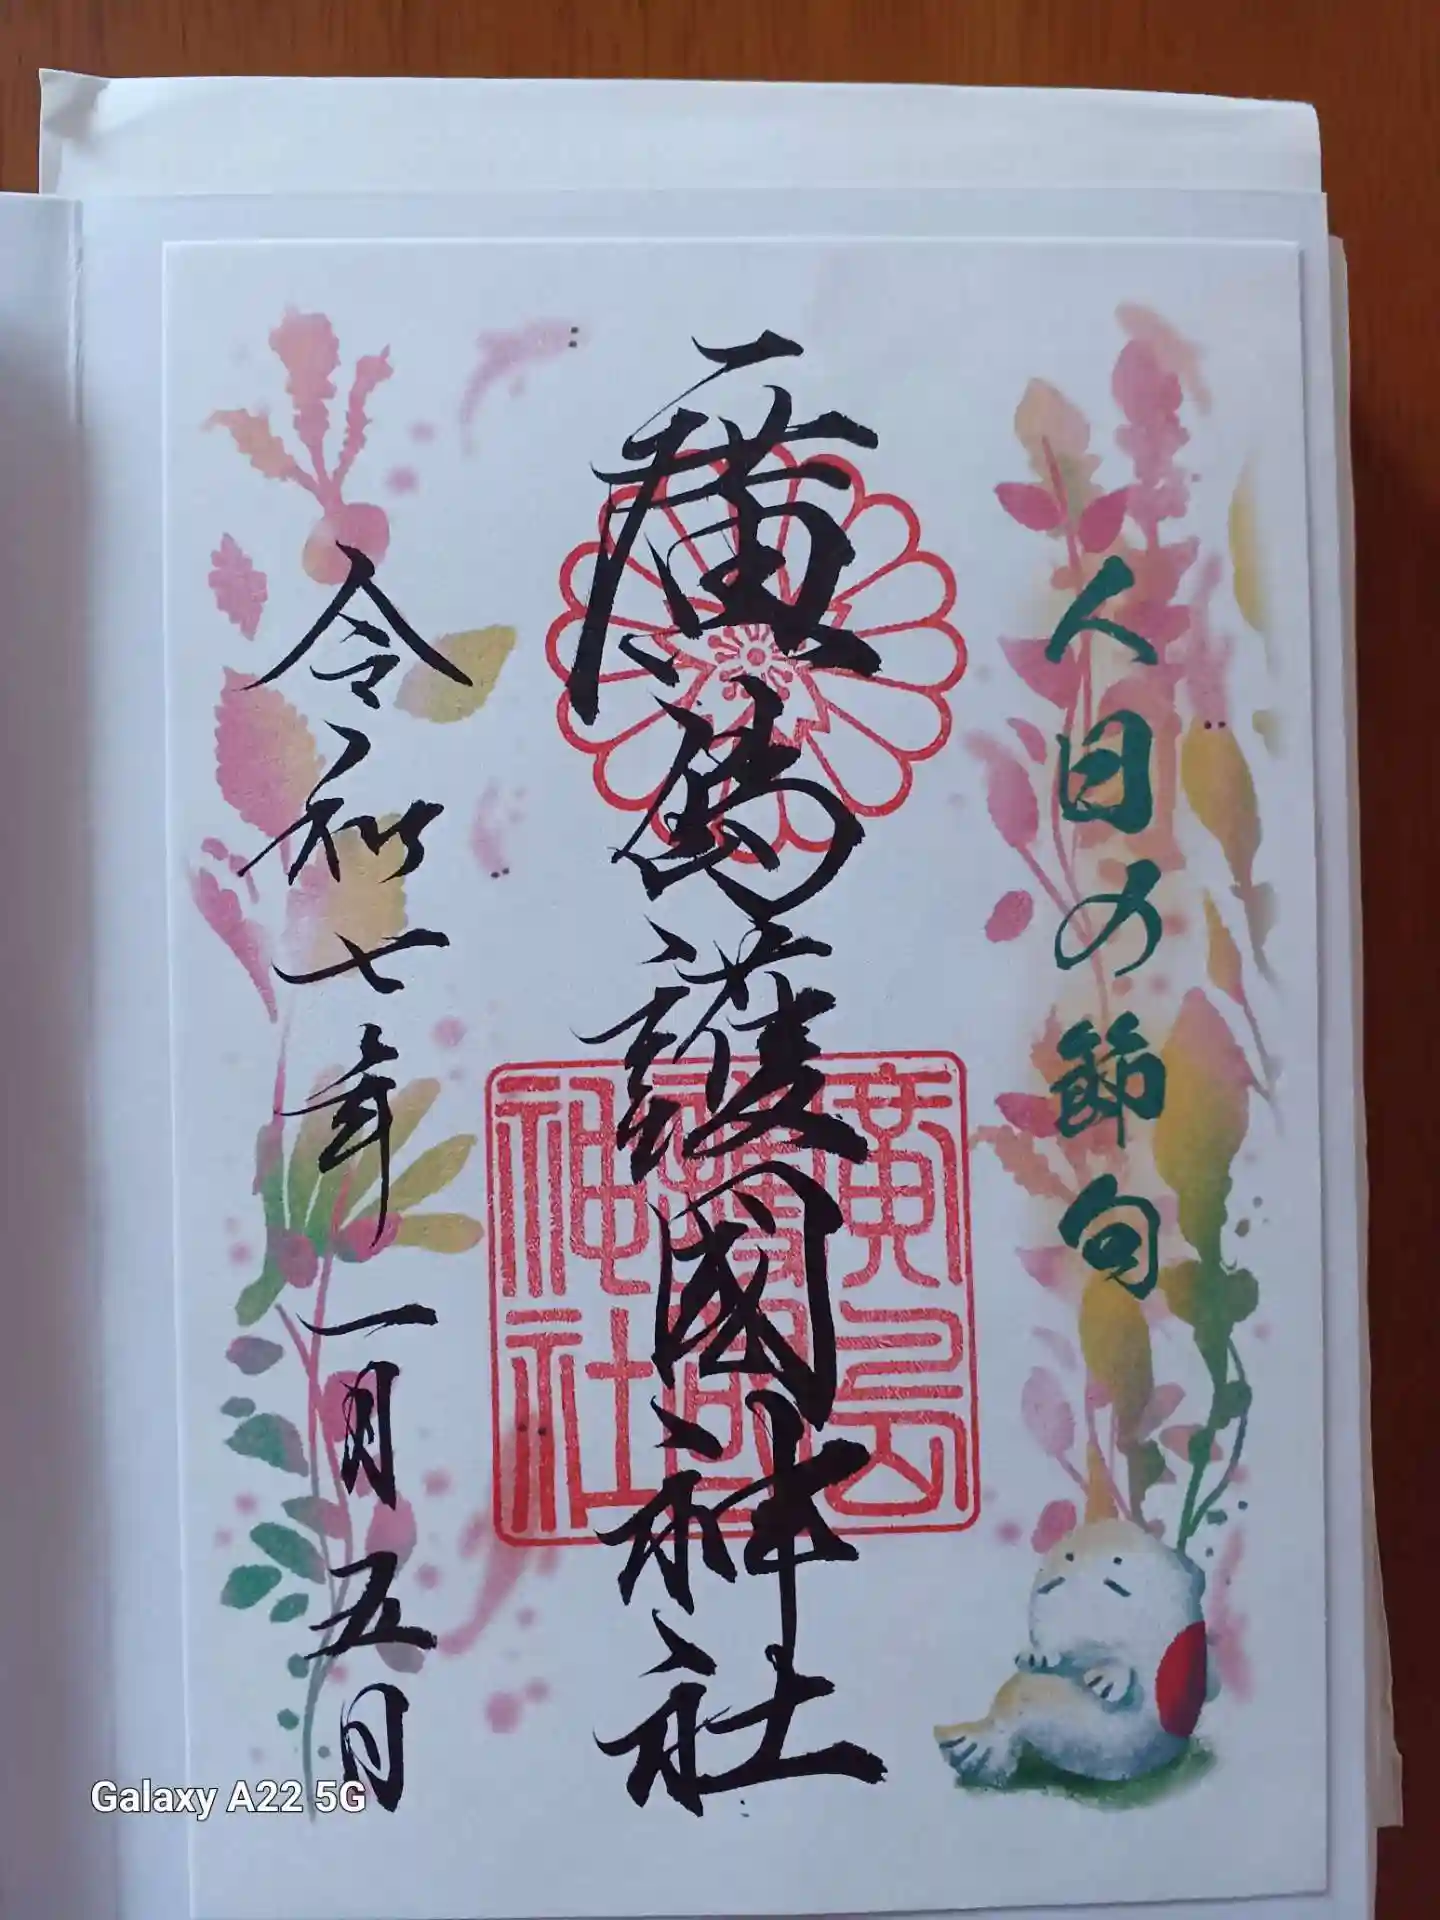 人日の節句
廣島護國神社
廣島
護國
神社
令和七年一月五日
Galaxy A22 5G